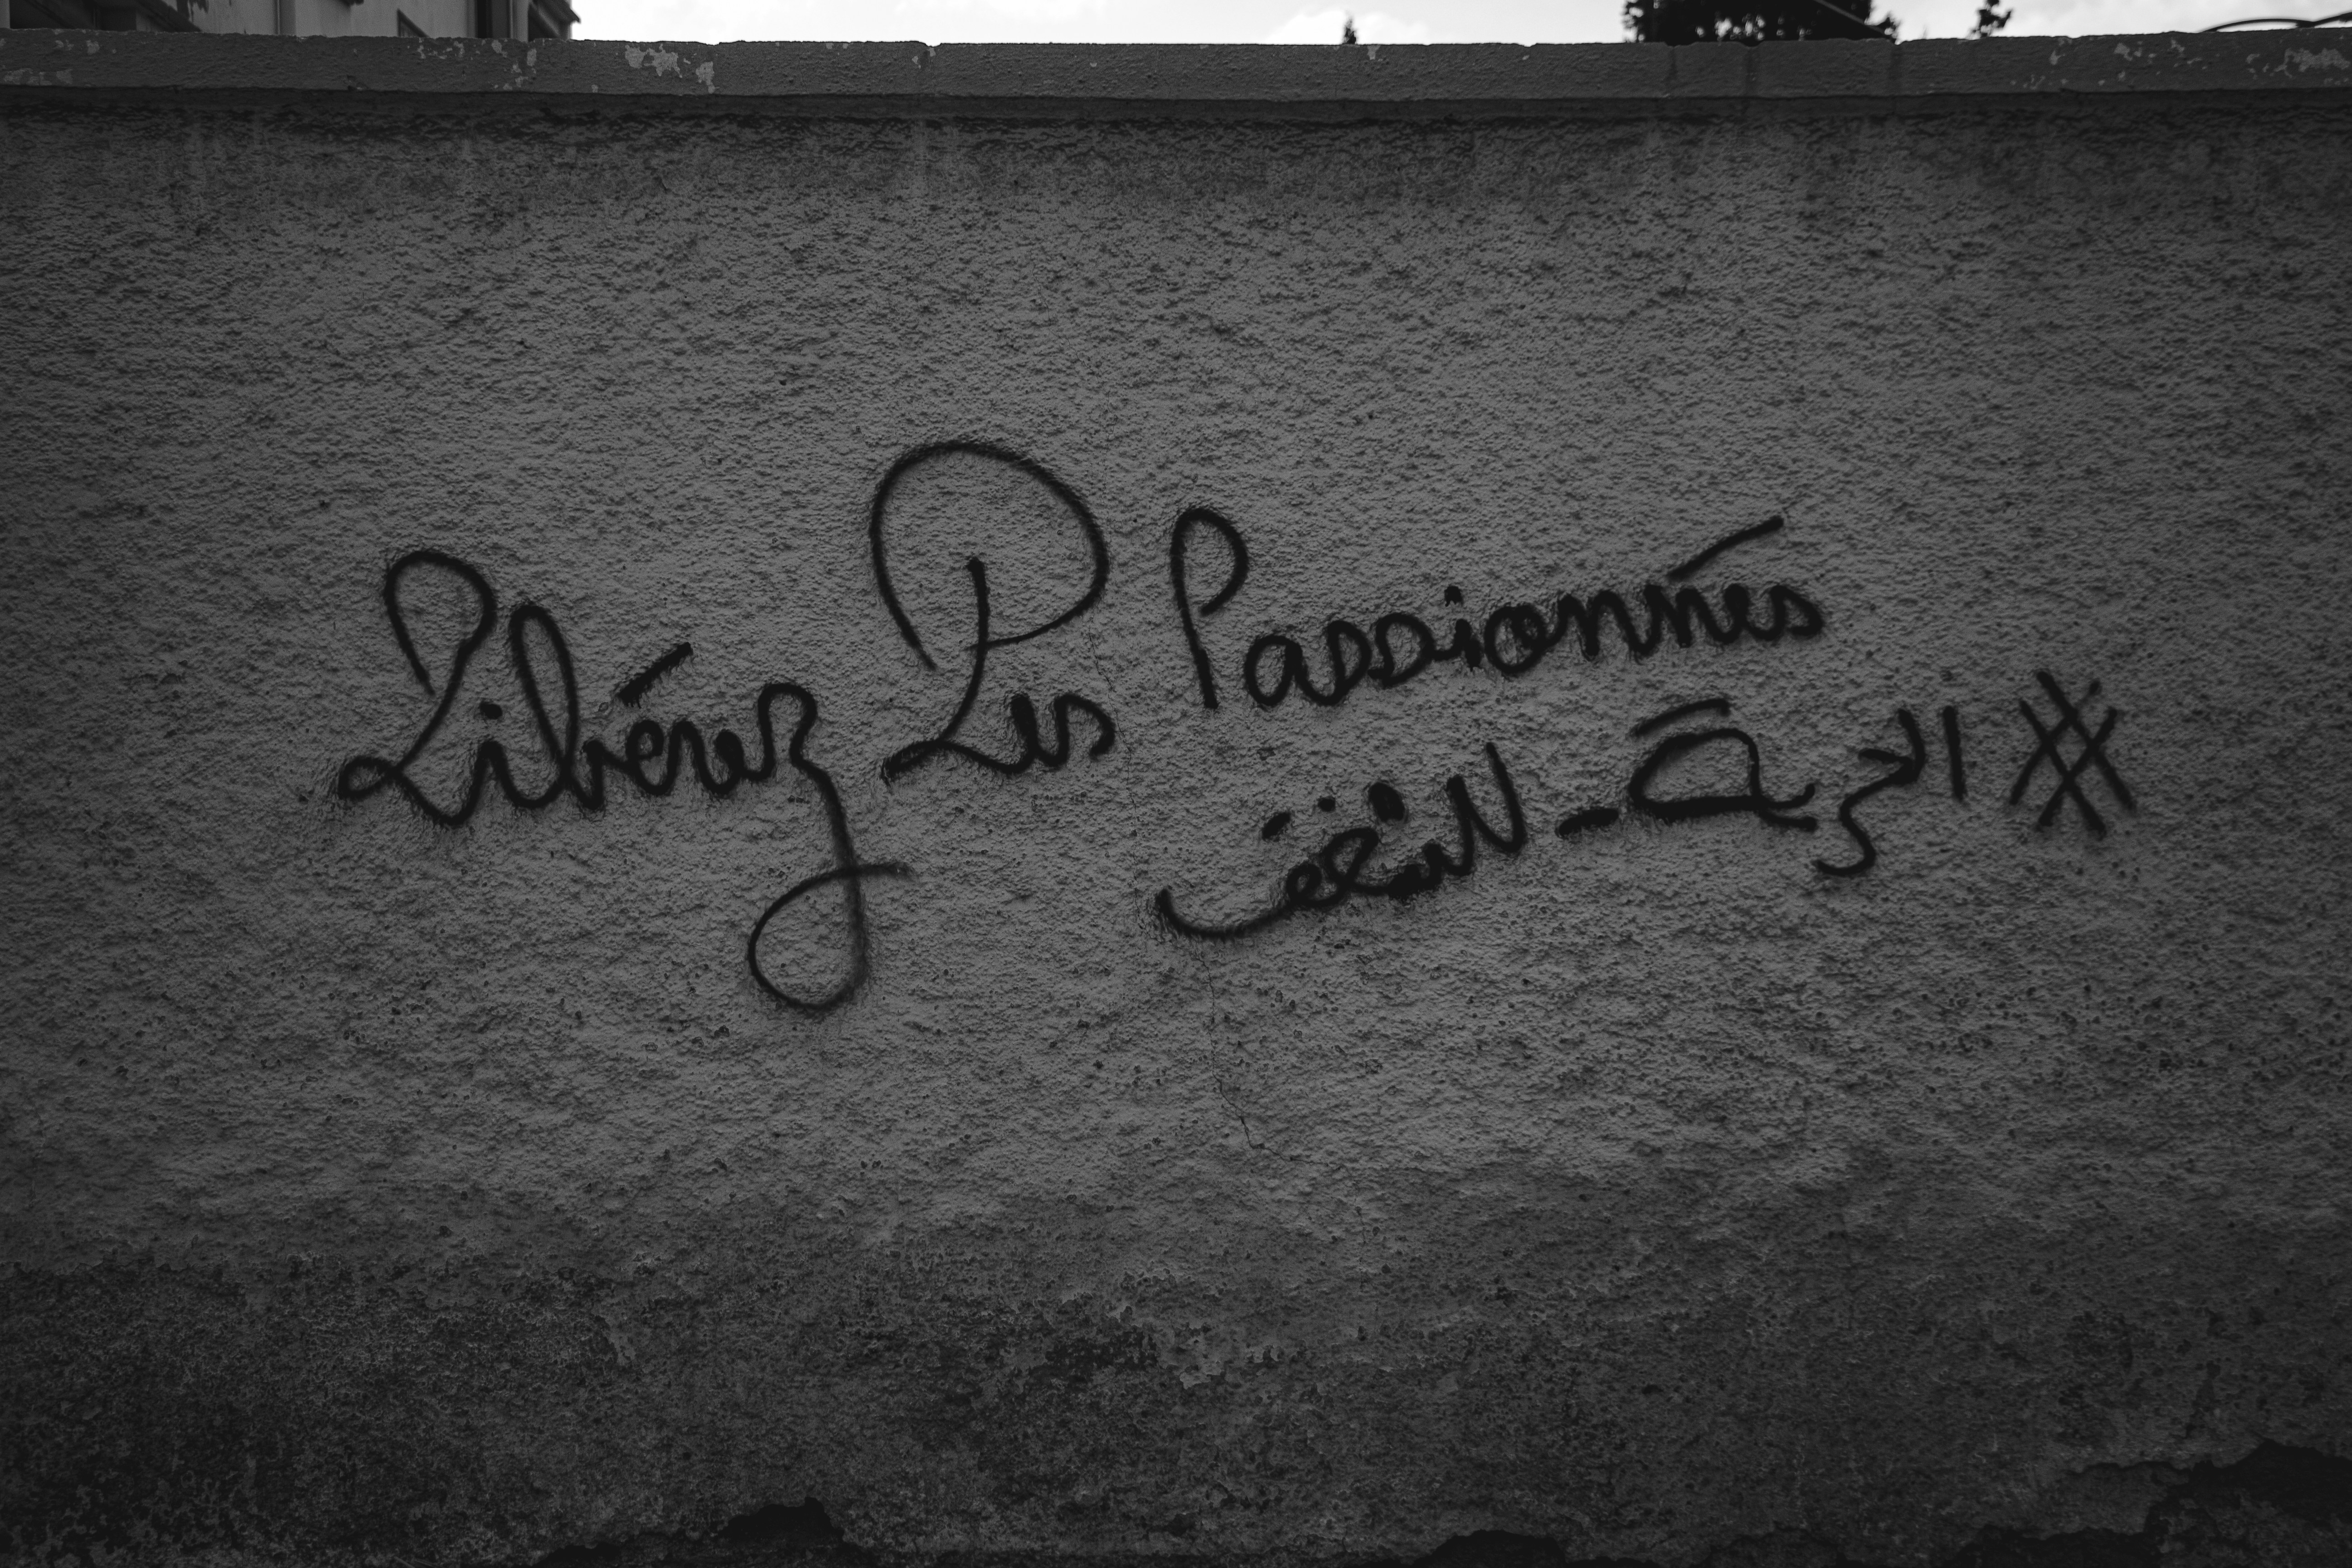 Libérez Les Passionnés
#الحرية_للشغف